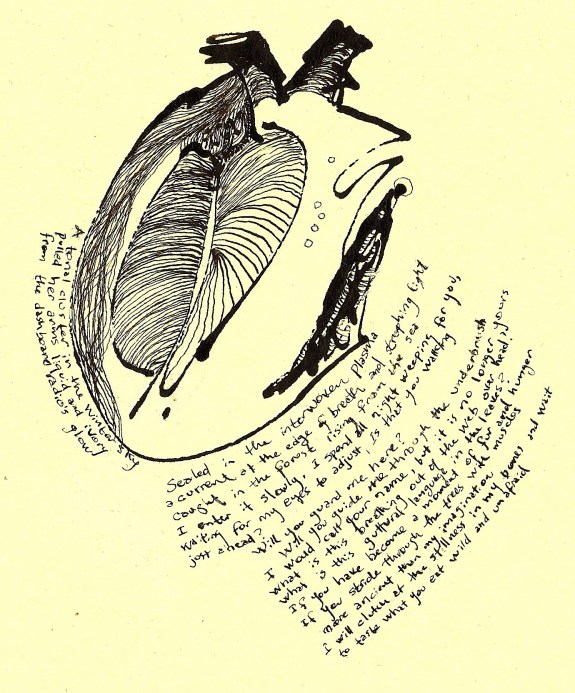 A tonal cluster in the winter sky
pulled her arms liquid and ivory
from the dashboard radio's glow
Sealed in the interwoven plasma
a current at the edge of breath and strophing light
caught in the forest rising from the sea
I enter it slowly. I spent all night weeping for you,
waiting for my eyes to adjust, is that you walking
just ahead?
Will you guard me here?
Will you guide me through the underbrush
I would call your name, but it is no longer yours
what is this breathing out of the web over head,
what is this guttural language in the leaves?
If you have become a moment of fur and hunger
If you stride through the trees with muscles
more ancient than my imagination
I will clutch at the stillness in my bones and wait
to taste what you eat wild and unafraid